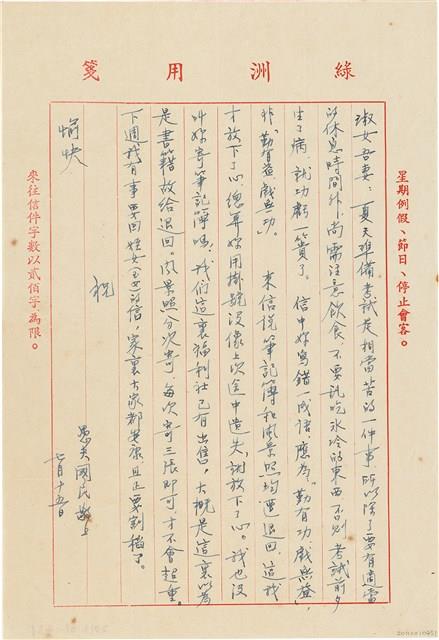 綠洲用箋
星期例假、節日、停止會客。
淑女吾妻：夏天準備考試是相當苦的一件事，所以除了要有適當
的休息時間外，尚需注意飲食，不要亂吃冰冷的東西，否則考試前夕
生了病，就功虧一簣了。信中妳寫錯一成語，應為「勤有功，戲無益」
非「勤有益戲無功」。來信說筆記簿和風景照均遭退回，這我
才放下了心，總算妳用掛號沒像上次途中遺失，就放下了心。我也沒
叫妳寄筆記簿嗎，我們這裏福利社已有出售，大概是這裏以為
是書籍故給退回。風景照分次寄，每次寄三張即可，才不會超重。
下週我有事要回姪女的信，家裏大家都安康，且正要割稻了。
祝
愉快
愚夫國民敬上
七月十五日
來往信件字數以貳佰字為限。